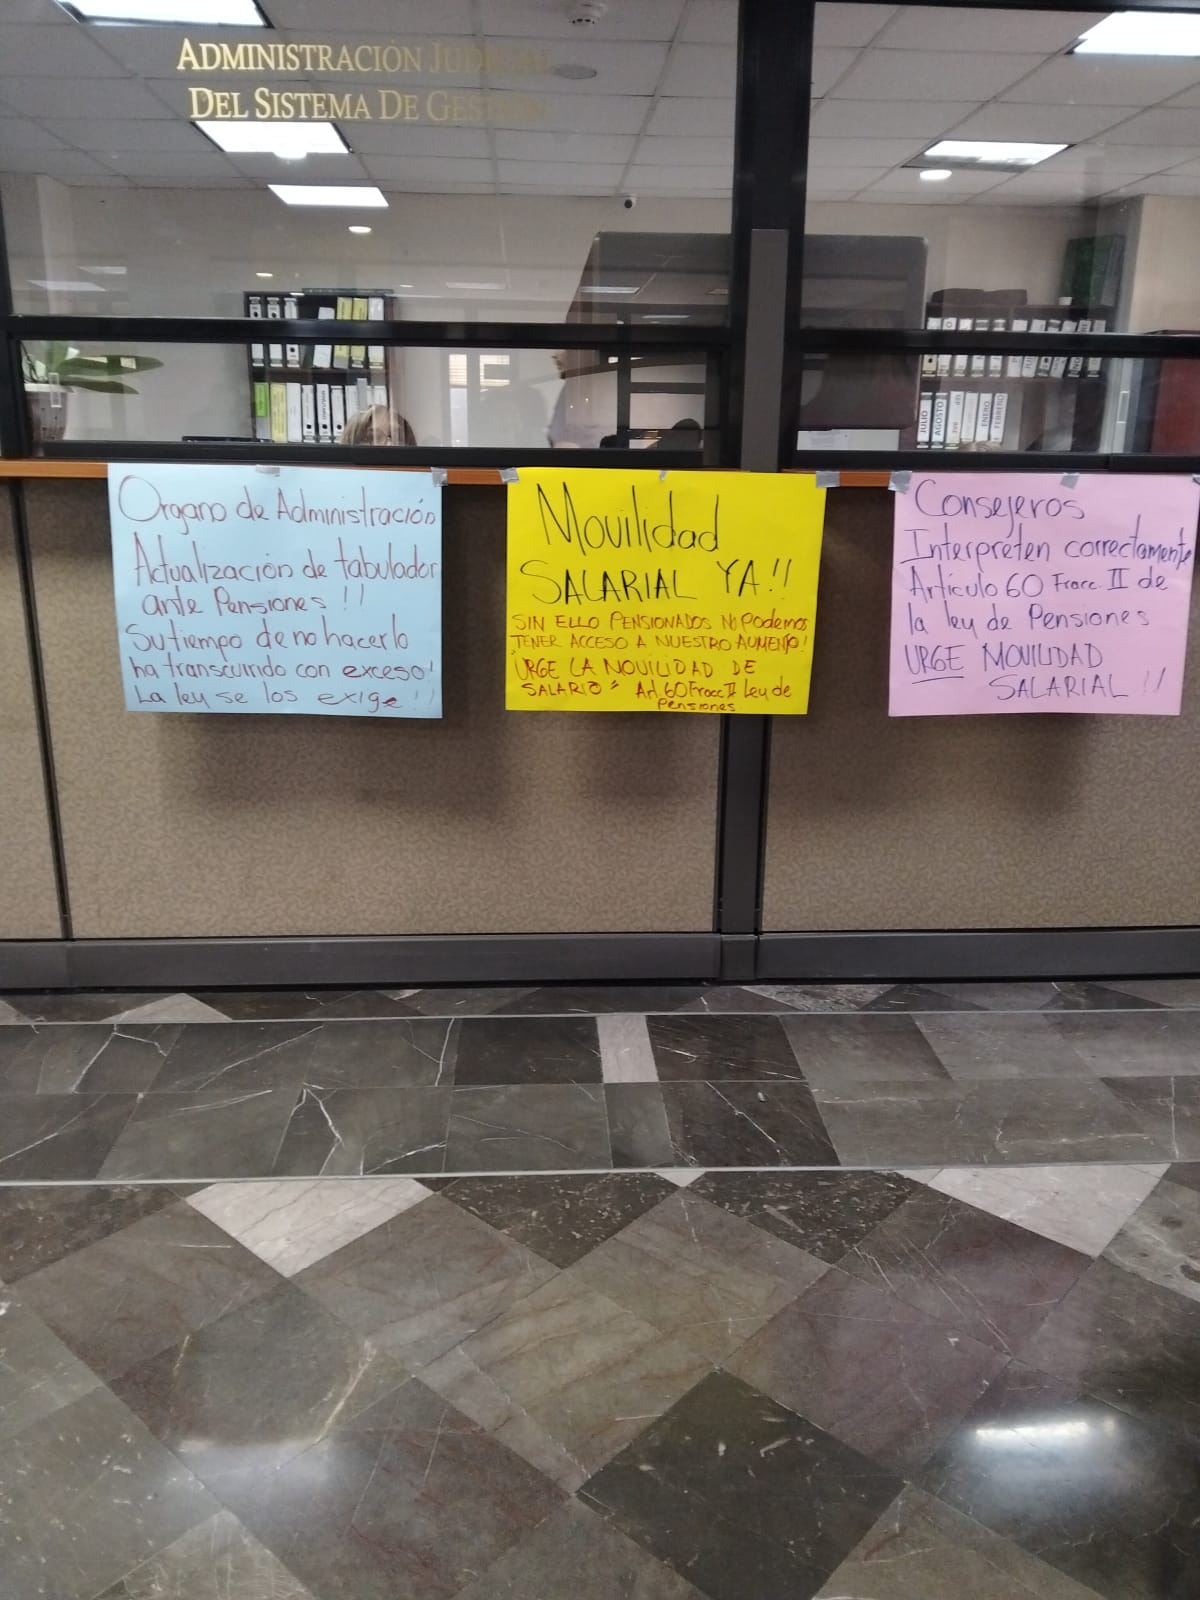 ADMINISTRACIÓN JUDICIAL
DEL SISTEMA DE GESTIÓN
Organo de Administración
Actualización de tabulador
ante Pensiones !!
Su tiempo de no hacerlo
ha transcurrido con exceso!
La ley se los exige !!
Movilidad
SALARIAL YA!!
SIN ELLO PENSIONADOS NO Podemos
TENER ACCESO A NUESTRO AUMENTO!
URGE LA MOVILIDAD DE
SALARIO" Art. 60 Fracc II Ley de
Pensiones
Consejeros
Interpreten correctamente
Artículo 60 Fracc. II de
la ley de Pensiones
URGE MOVILIDAD
SALARIAL !!
JULIO
AGOSTO
SEP
ENERO
FEBRERO